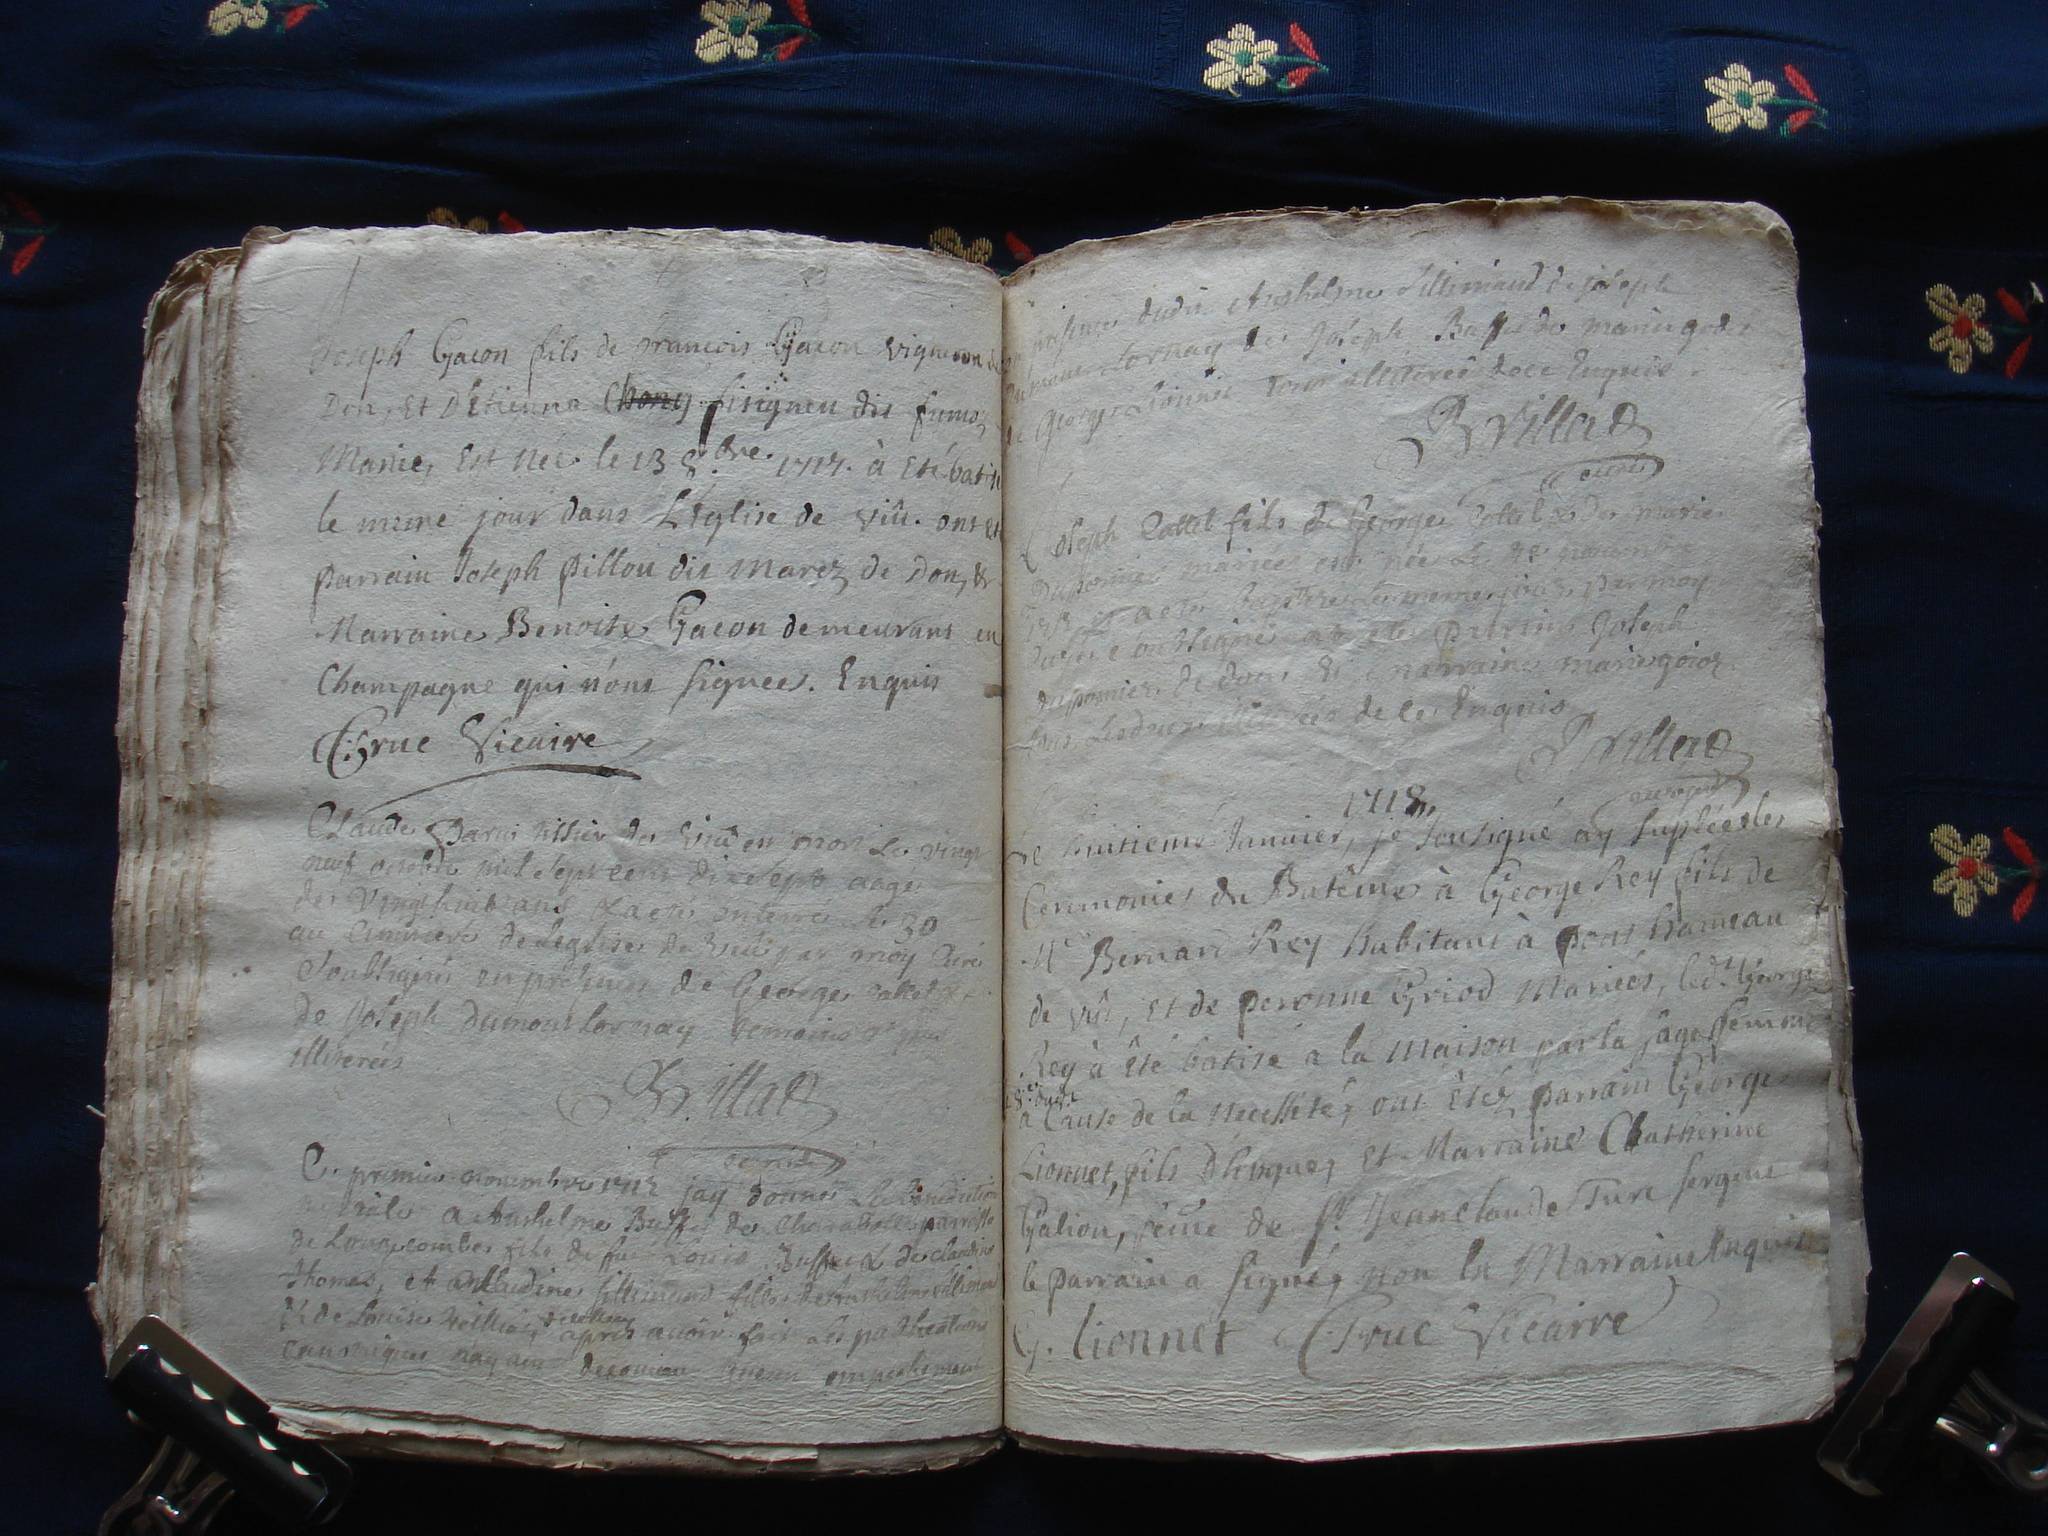 Joseph Gacon fils de francois Gacon vigneron de
Don, Et D'Etienna Chony firigneu dit fumoz
Mariez, Est Née le 13 8.bre 1717. à Eté batise
le meme jour dans L'Eglise de viû. ont Et
parrain Joseph pillou dit Marez de Don, &
Marraine Benoiste Gacon demeurant en
Champagne qui n'ont signees. Enquis
C: Gruc Vicaire
Claude Parui tissier de viû en mort le vingt
neuf octobre mil sept cent dix sept aage
de vingt huit ans & a eté enterré le 30
au cimitiere de l'eglise de viû par moy Curé
soubsigné en presence de George Cattet &
de Joseph dumont lornay temoins
illiterés
B. villad
curé
Ce premier novembre 1717 jay donné La benediction
a Anthelme Buffet de Charabotte parroisse
de Longecombe fils de fue Louis Buffet & de claudine
thomas, et a claudine fillimand fille de Anthelme fillimand
& de Louise apres avoir fait les publications
canoniques nayant decouvert aucun empeschement
en presence dudit Anthelme fillimand de joseph
dumont Lornay de Joseph Buffet de marin
& George Lionnet tous illiterés de ce Enquis
B villad
curé
Joseph Cattet fils de George Cattet & de marie
Duponier mariés est née Le novembre
1717 & a eté baptizé Le meme jour Par moy
curé soubsigné a eté Parrain Joseph
dupomier de don Et marraine marie goioz
tous Les deux illiterés de ce Enquis
B villad
1718,
Le huitieme Janvier, je sousigné ay supléez les
Ceremonies du Batême à George Rey fils de
Mr Bernard Rey habitant à pont hameau
de viû, et de peronne Griod Mariés, led.t George
Rey à Eté batisé a la Maison par la sage femme
8e dud.t
a Cause de la necessité, ont Etez parrain George
Lionnet, fils D'hugue, Et Marraine Chatherine
Galion, feme de Sr. Jeanclaude Turc sergent
le parrain a signé, non la Marraine Enquis
G. lionnet C: Gruc Vicaire